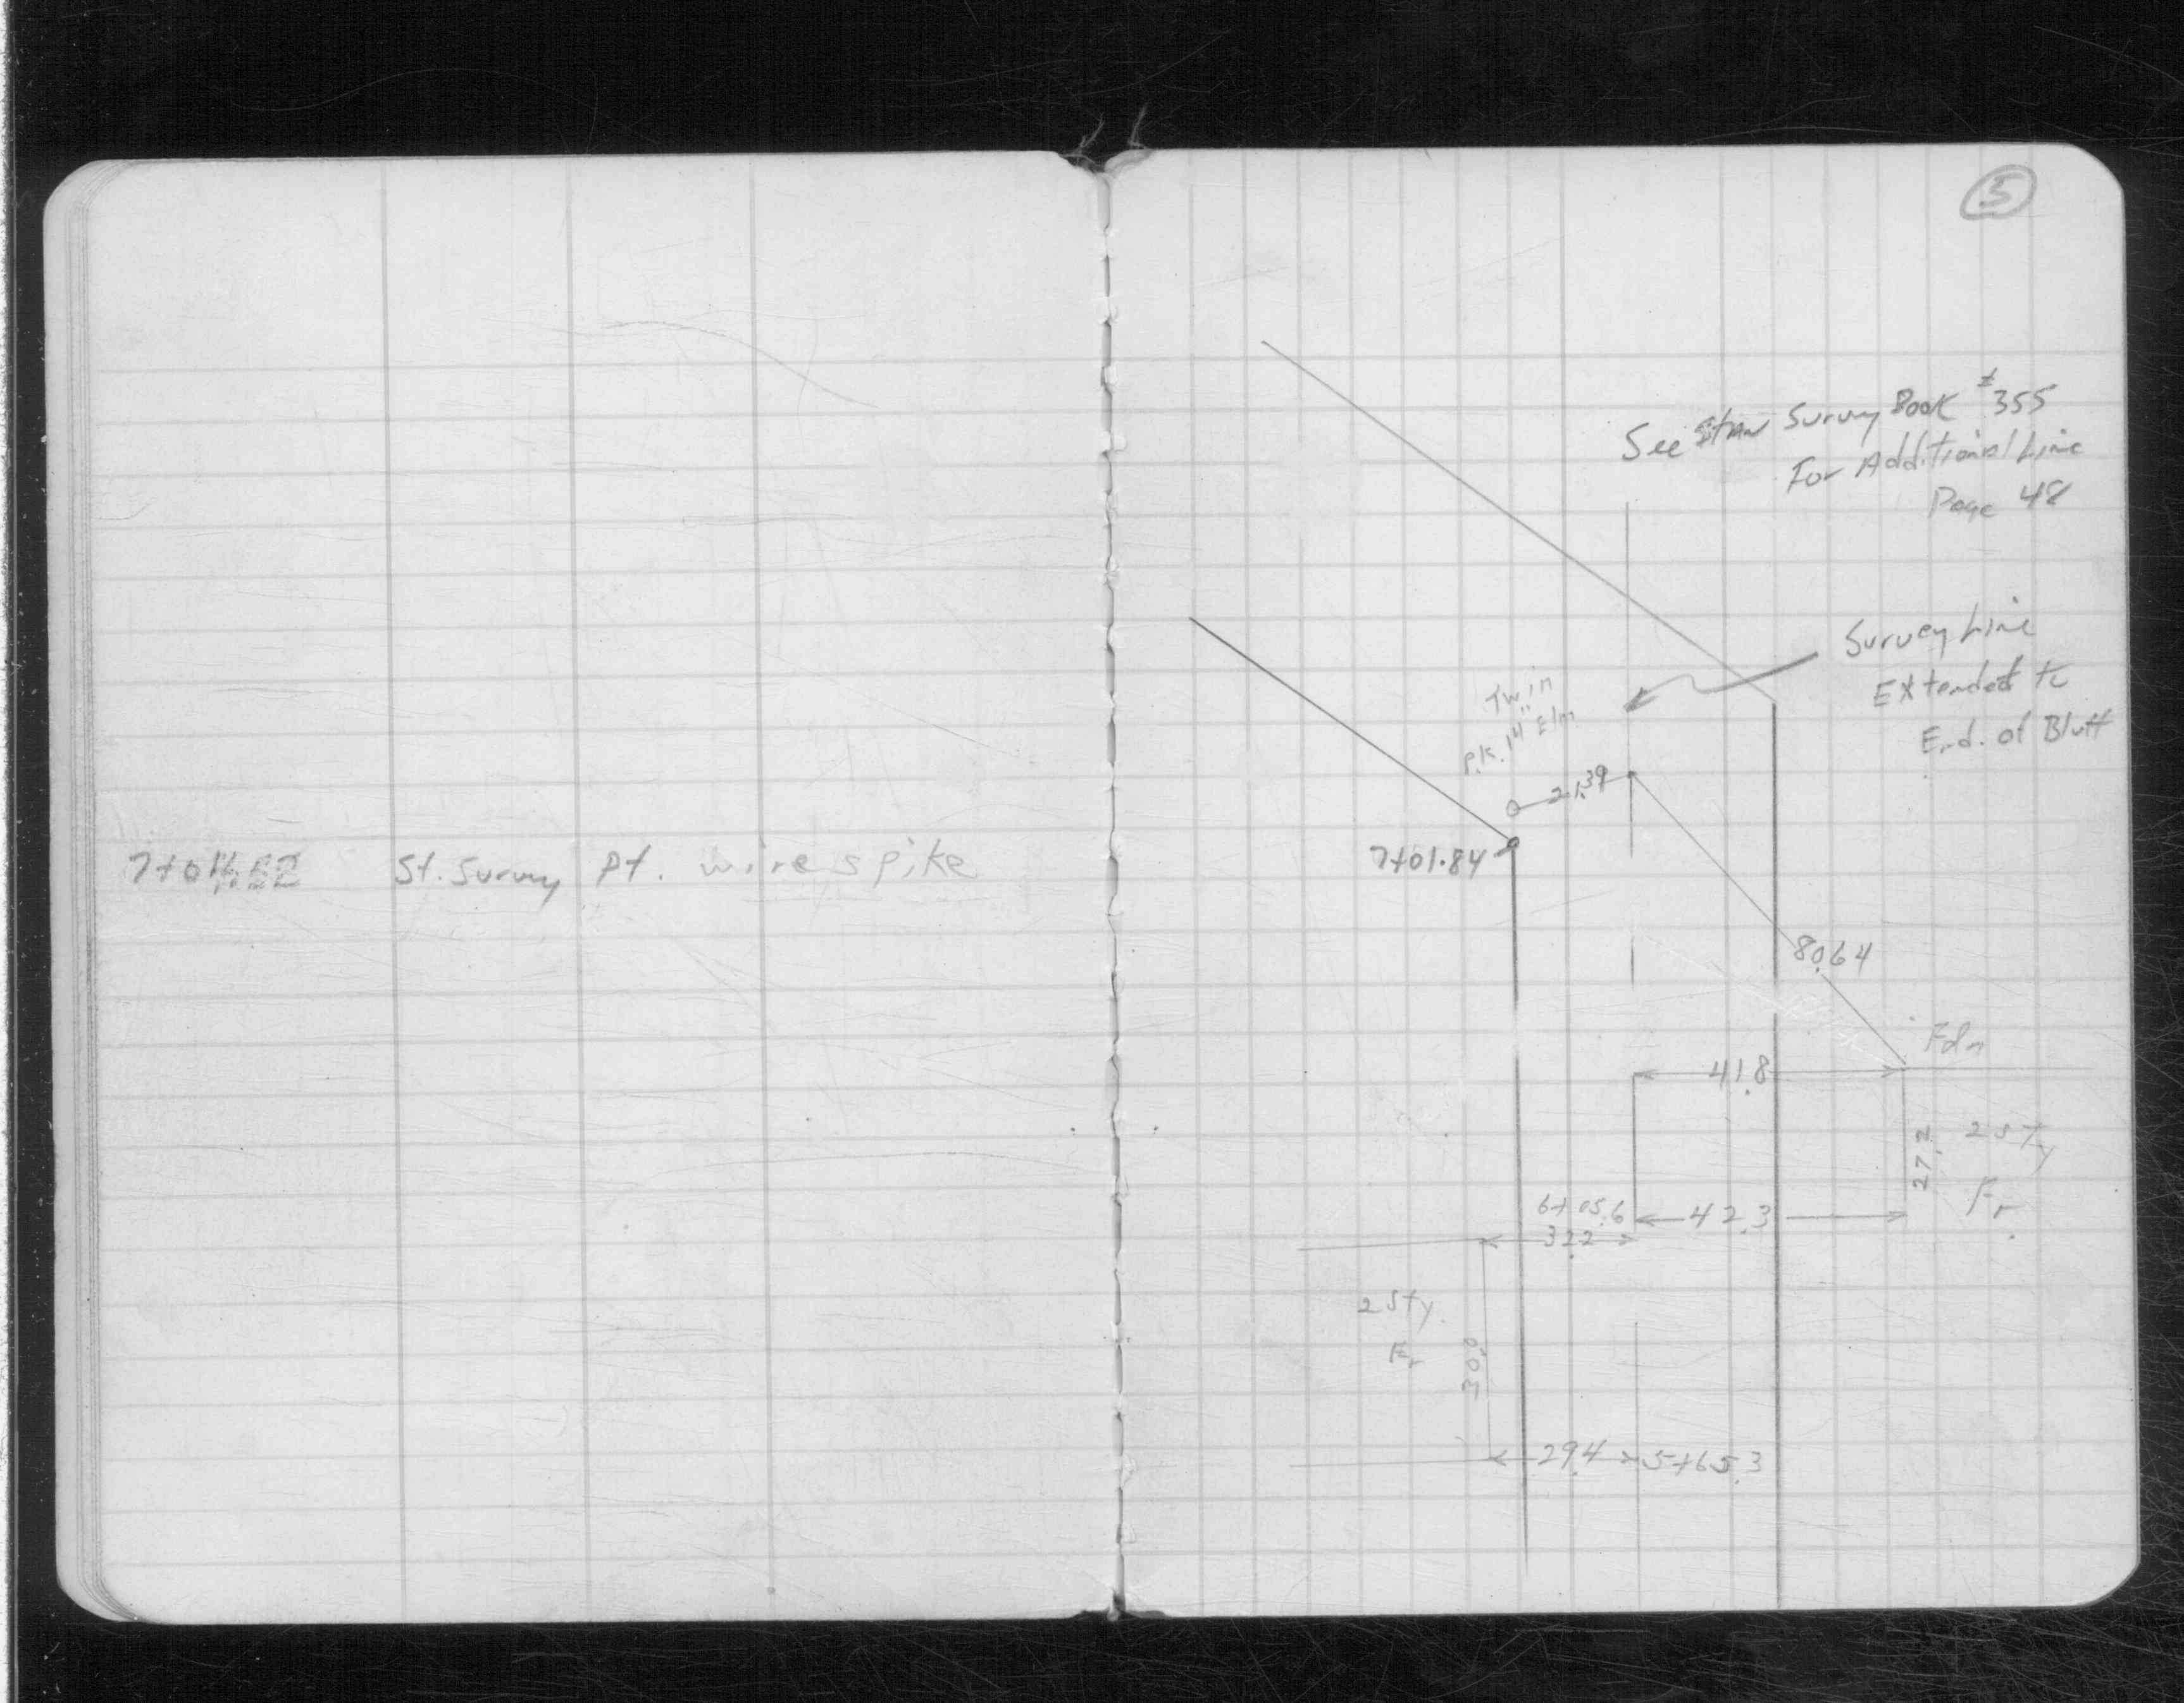 7+01 St. Survey Pt. wire spike
5
See Survey Book # 355
For Additional Line
Page 48
Survey Line
Extended to
End. of Bluff
Twin
P.K. 14" Elm
21.39
7+01.84
80.64
Fdn
41.8
27.2
2 STy
Fr.
6+05.6
42.3
32.2
2 Sty.
Fr
30.0
29.4
5+65.3